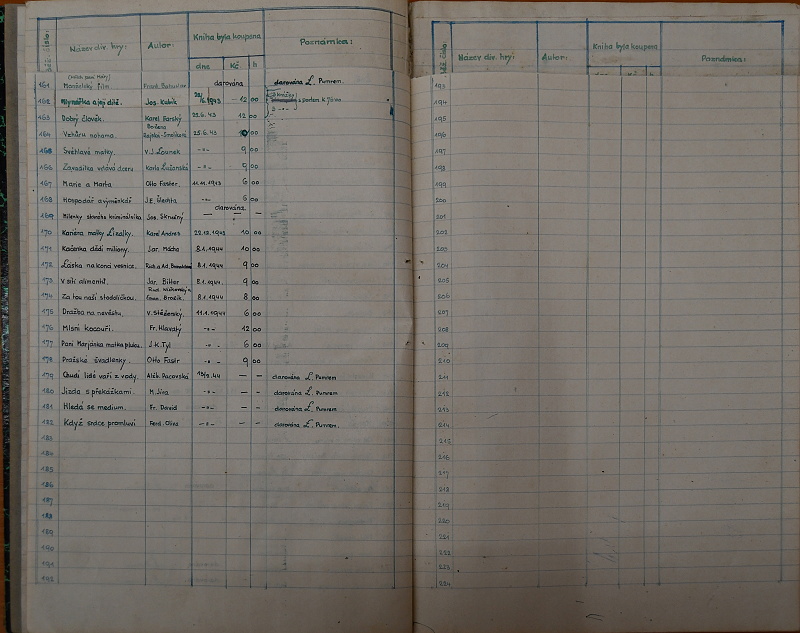 Běž. číslo: Název div. hry: Autor: Kniha byla koupena Poznámka:
dne Kč h
161 Manželský film darována darována L. Pumrem.
162 Mlynářka a její dítě. Jos. Kubík 1943 12 00
163 Dobrý člověk. Karel Farský 22.6.43 12 00
164 Vzhůru nohama. Božena 25.6.43 10 00
165 Světlavé matky. V.J. Lounek -"- 9 00
166 -"- 9 00
167 Marie a Marta Otto Faster. 11.11.1943 6 00
168 Hospodář a výměnkář J.E. Šlechta -"- 6 00
169 Milenky starého kriminálníka Jos. Skružný — darována. —
170 Kariéra matky Lízalky. Karel Andres 22.12.1943 10 00
171 Kačenka dědí miliony. Jar. Mácha 8.1.1944 10 00
172 Láska na konci vesnice. 8.1.1944 9 00
173 V síti alimentů. Jar. Bitter 8.1.1944. 9 00
174 Za tou naší stodoličkou. Brožík. 8.1.1944 8 00
175 Dražba na nevěstu. 11.1.1944 6 00
176 Mlsní kocouři. Fr. Hlavatý -"- 12 00
177 Paní Marjánka matka pluku. J.K. Tyl -"- 6 00
178 Pražské švadlenky. Otto Fastr. -"- 9 00
179 Chudí lidé vaří z vody. Alch. Pacovská 13/2.44 — – darována L. Pumrem
180 Jízda s překážkami. M. Jíra -"- — – darována L. Pumrem.
181 Hledá se medium. Fr. David -"- — – darována L. Pumrem
182 Když srdce promluví Ferd. Oliva -"- — – darována L. Pumrem.
183
184
185
186
187
188
189
190
191
192
Běž. číslo Název div. hry: Autor: Kniha byla koupena Poznámka:
dne Kč h
193
194
195
196
197
198
199
200
201
202
203
204
205
206
207
208
209
210
211
212
213
214
215
216
217
218
219
220
221
222
223
224